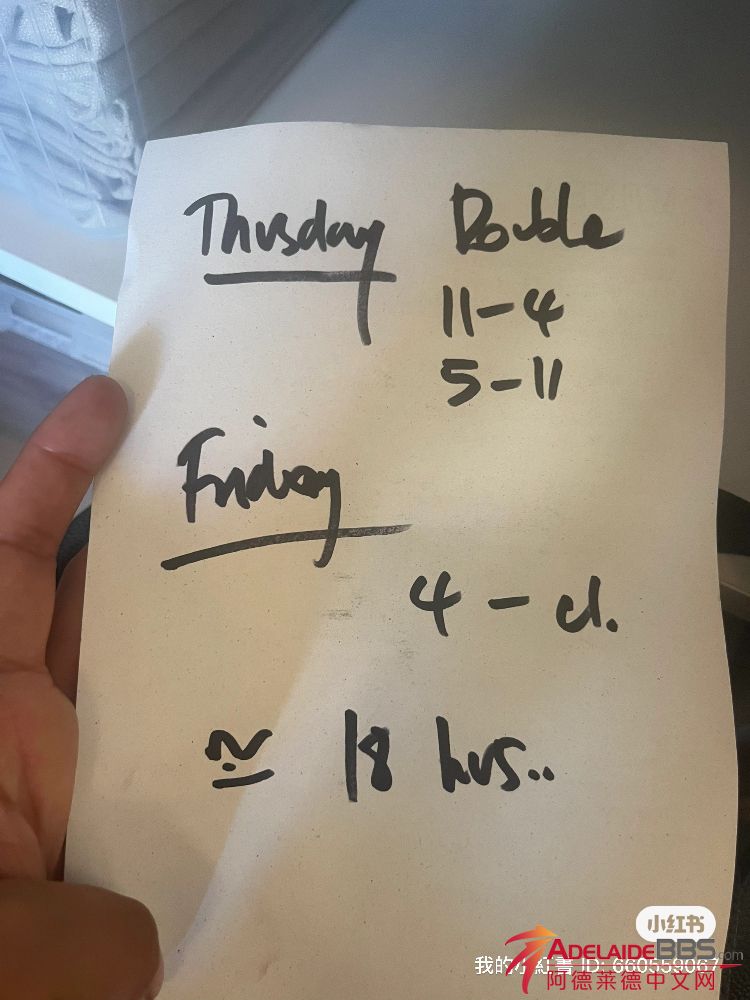 Thusday Double
11-4
5-11
Friday
4 - cl.
≅ 18 hrs..
小红书
ADELAIDEBBS.com
我的小紅書 ID: 660559067
阿德莱德中文网